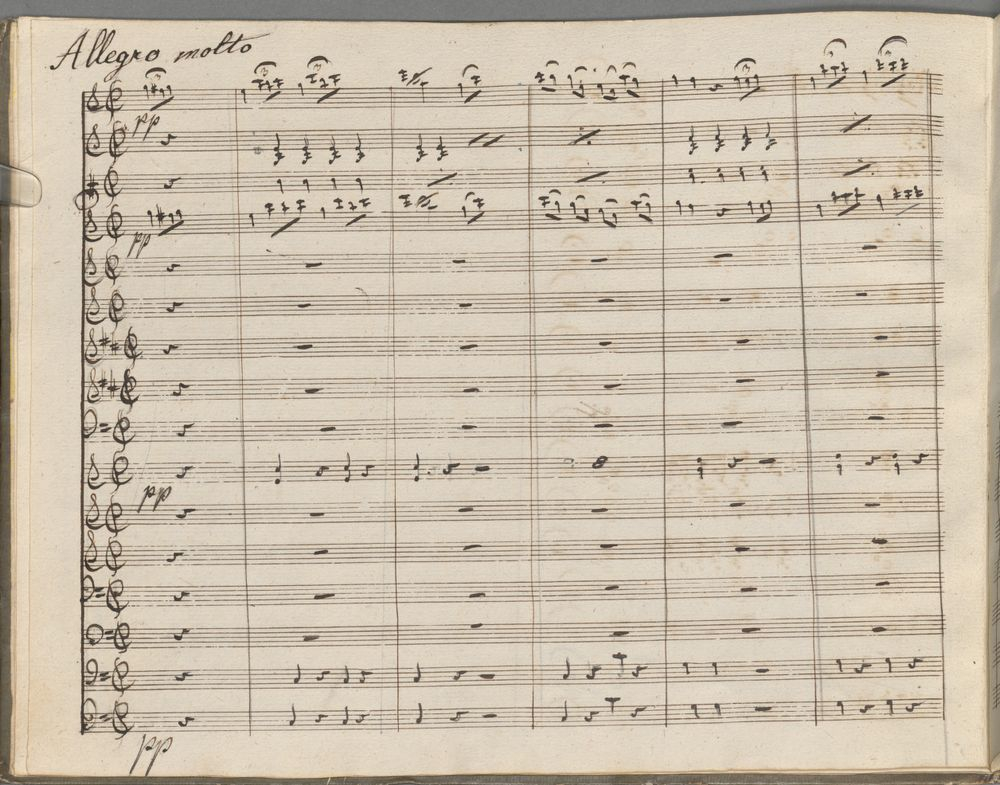 Allegro molto
pp
pp
pp
pp